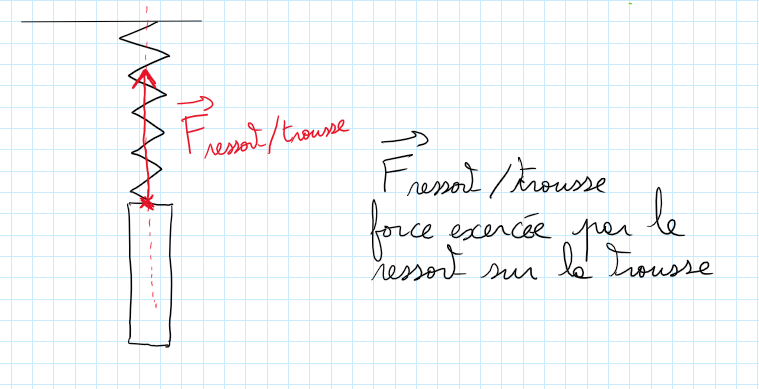 F ressort/trousse
F ressort/trousse
force exercée par le
ressort sur la trousse